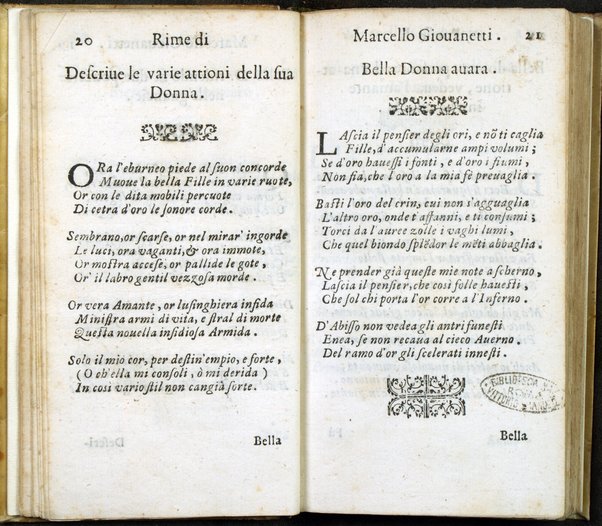 20 Rime di
Descriue le varie attioni della sua
Donna.
ORa l'eburneo piede al suon concorde
Muoue la bella Fille in varie ruote,
Or con le dita mobili percuote
Di cetra d'oro le sonore corde.
Sembrano, or scarse, or nel mirar' ingorde
Le luci, ora vaganti, & ora immote,
Or mostra accese, or pallide le gote,
Or' il labro gentil vezzosa morde.
Or vera Amante, or lusinghiera infida
Ministra armi di vita, e stral di morte
Questa nouella insidiosa Armida.
Solo il mio cor, per destin'empio, e forte,
( O ch'ella mi consoli, ò mi derida )
In così vario stil non cangia sorte.
Bella
Marcello Giouanetti. 21
Bella Donna auara.
LAscia il pensier degli ori, e nō ti caglia
Fille, d'accumularne ampi volumi;
Se d'oro hauessi i fonti, e d'oro i fiumi,
Non fia, che l'oro a la mia fè preuaglia.
Basti l'oro del crin, cui non s'agguaglia
L'altro oro, onde t'affanni, e ti consumi;
Torci da l'auree zolle i vaghi lumi,
Che quel biondo splēdor le mēti abbaglia.
Ne prender già queste mie note a scherno,
Lascia il pensier, che così folle hauesti,
Che sol chi porta l'or corre a l'Inferno.
D'Abisso non vedea gli antri funesti
Enea, se non recaua al cieco Auerno.
Del ramo d'or gli scelerati innesti.
Bella